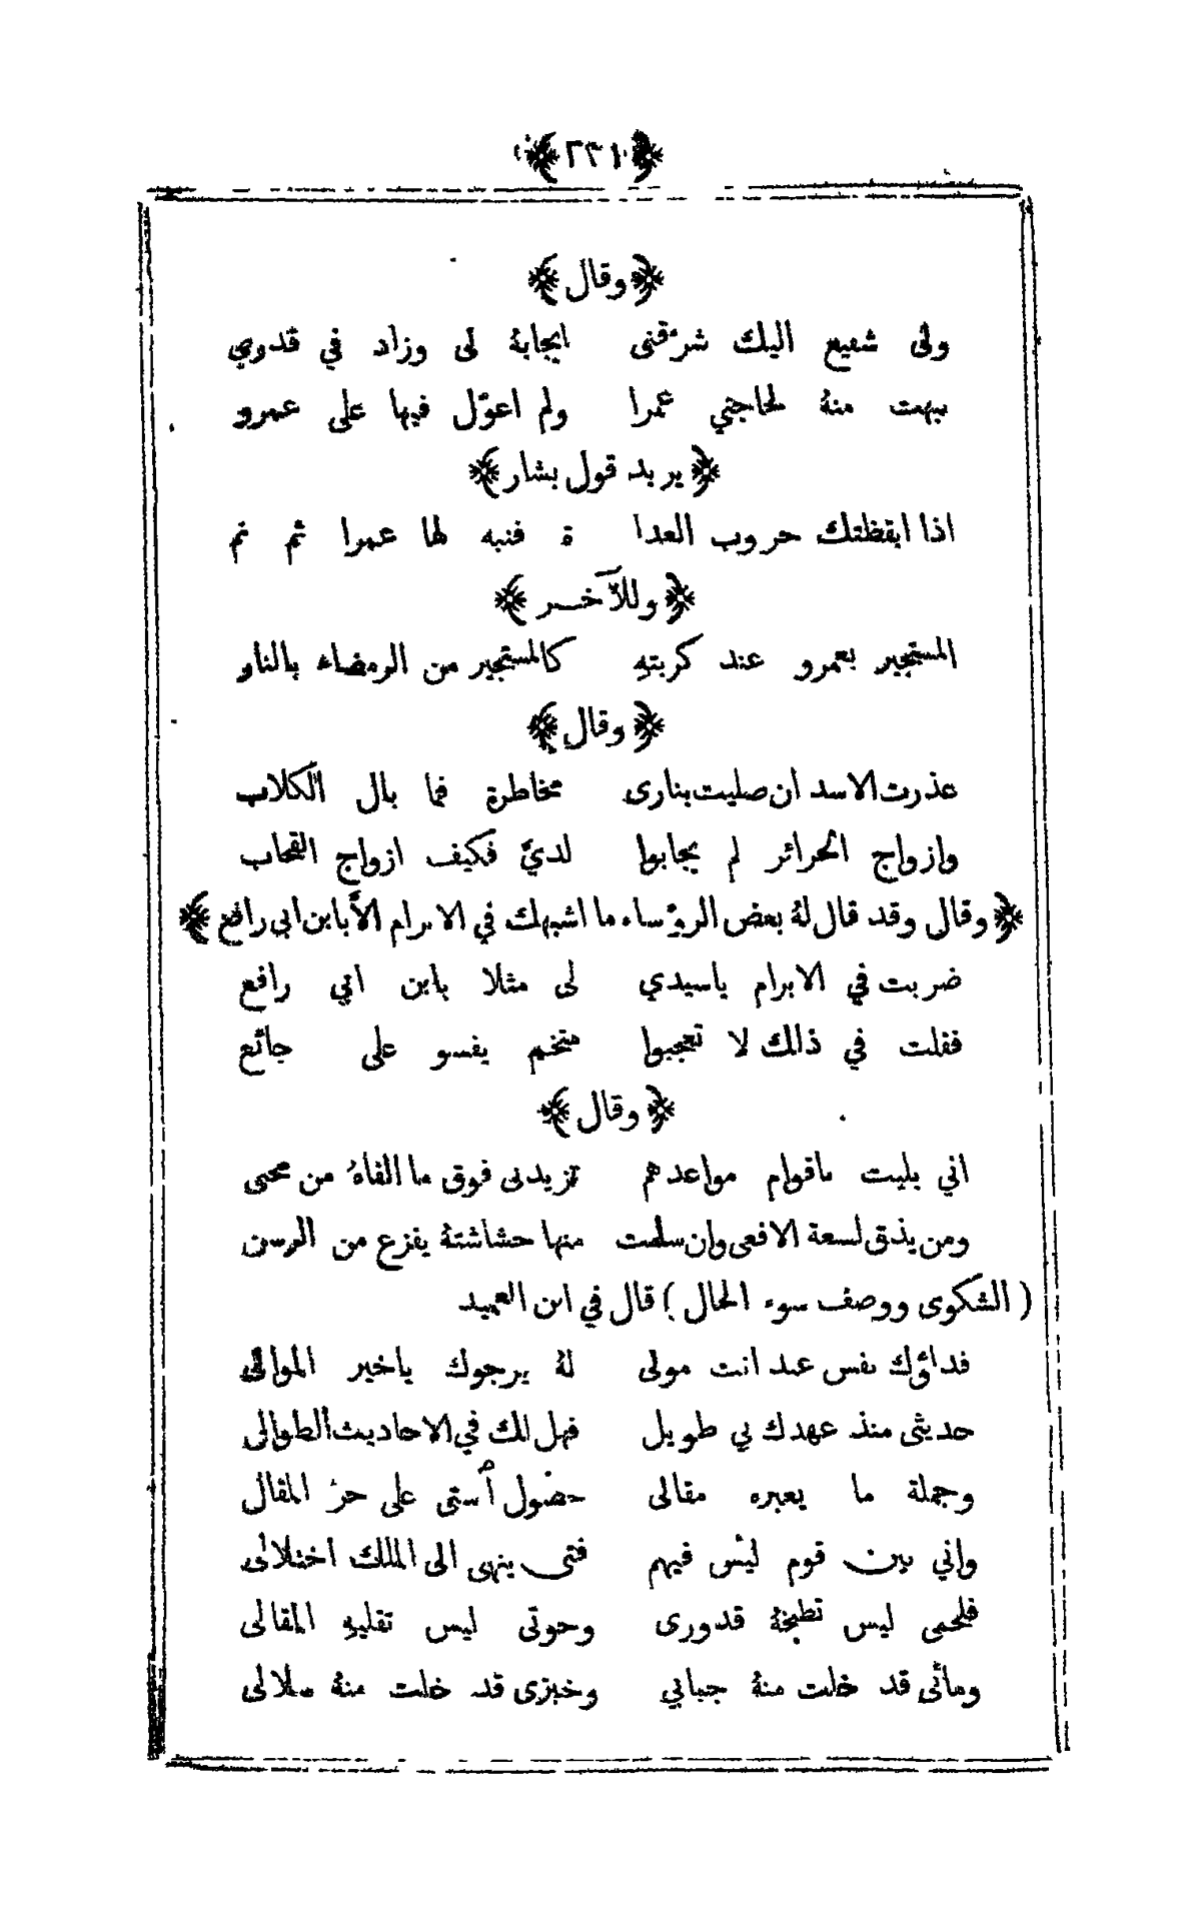 ﴿ ٢٣١ ﴾
﴿ وقال ﴾
ولى شفيع اليك شرّفنى ايجابهُ لى وزاد في قدري
نبهت منهُ لحاجتي عمرا ولم اعوّل فيها على عمرو
﴿ يريد قول بشار ﴾
اذا ايقظتك حروب العدا ة فنبه لها عمرا ثم نم
﴿ وللآخر ﴾
المستجير بعمرو عند كربتهِ كالمستجير من الرمضاء بالنار
﴿ وقال ﴾
عذرت الاسد ان صليت بنارى مخاطرة فما بال الكلاب
وازواج الحرائر لم يحابوا لديّ فكيف ازواج القحاب
﴿ وقال وقد قال لهُ بعض الرؤساء ما اشبهك في الابرام الاّ بابن ابى رافع ﴾
ضربت في الابرام ياسيدي لى مثلا بابن ابي رافع
فقلت في ذلك لا تعجبوا متخم يفسو على جائع
﴿ وقال ﴾
اني بليت باقوام مواعدهم تزيدنى فوق ما القاهُ من محنى
ومن يذق لسعة الافعى وان سلمت منها حشاشتهُ يفزع من الرسن
( الشكوى ووصف سوء الحال ) قال في ابن العميد
فداؤك نفس عبد انت مولى لهُ يرجوك ياخير الموالى
حديثى منذ عهدك بي طويل فهل لك في الاحاديث الطوالى
وجملة ما يعبره مقالى حصول أستى على حرّ المقال
واني بين قوم ليس فيهم فتى ينهى الى الملك اختلالى
فلحمى ليس تطبخهُ قدورى وحوتى ليس تقليهِ المقالى
ومائى قد خلت منهُ جبابي وخبزى قد خلت منهُ سلالى